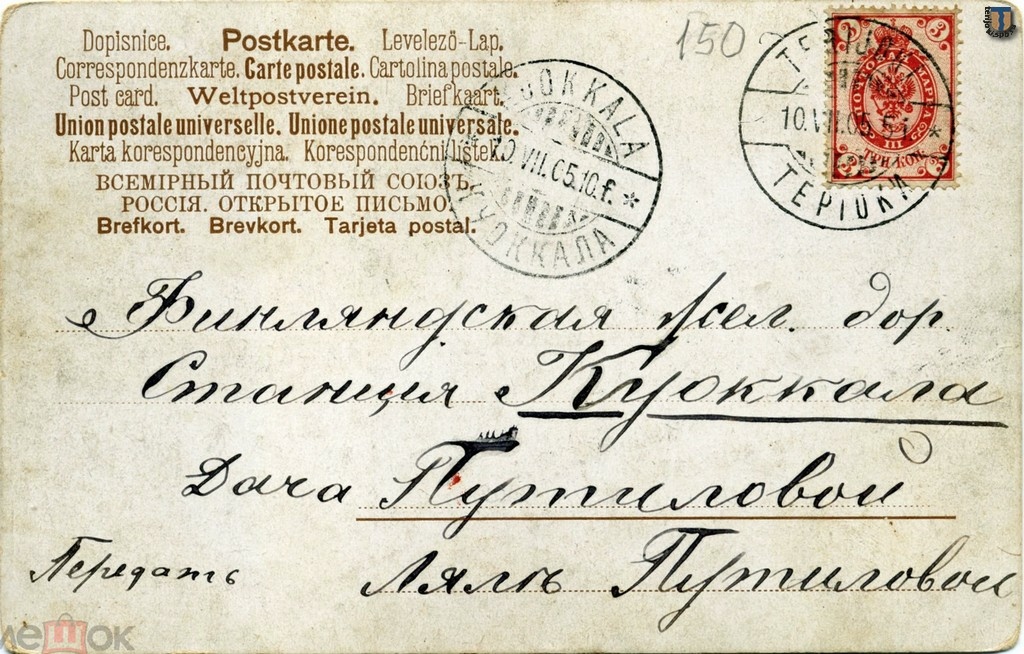 Dopisnice. Postkarte. Levelező-Lap.
Correspondenzkarte. Carte postale. Cartolina postale.
Post card. Weltpostverein. Briefkaart.
Union postale universelle. Unione postale universale.
Karta korespondencyjna. Korespondenčni listek.
ВСЕМІРНЫЙ ПОЧТОВЫЙ СОЮЗЪ.
РОССІЯ. ОТКРЫТОЕ ПИСЬМО.
Brefkort. Brevkort. Tarjeta postal.
150
10.VII.05.10.f.
КУОККАЛА
10.VII.05
ТЕРІОКИ
3 3
ТРИ КОП.
3 3
Финляндская жел. дор.
Станція Куоккала
Дача Путиловой
Передать Лялѣ Путиловой